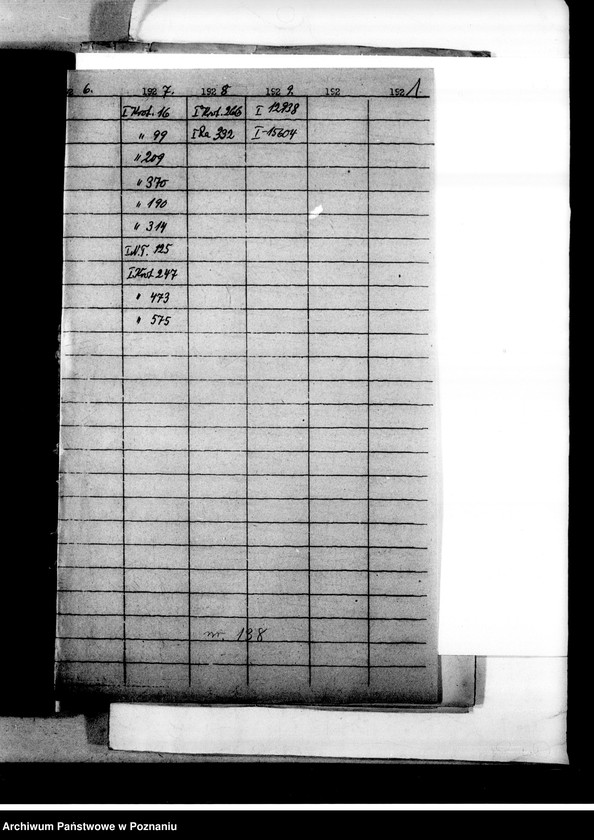 6. 1927. 1928 1929. 192 1921.
I Krot. 16 I Krot. 266 I 12938
" 99 I Ra 392 I-15604
" 209
" 370
" 190
" 314
I N.T. 125
I Krot 247
" 473
" 575
nr. 138
Archiwum Państwowe w Poznaniu